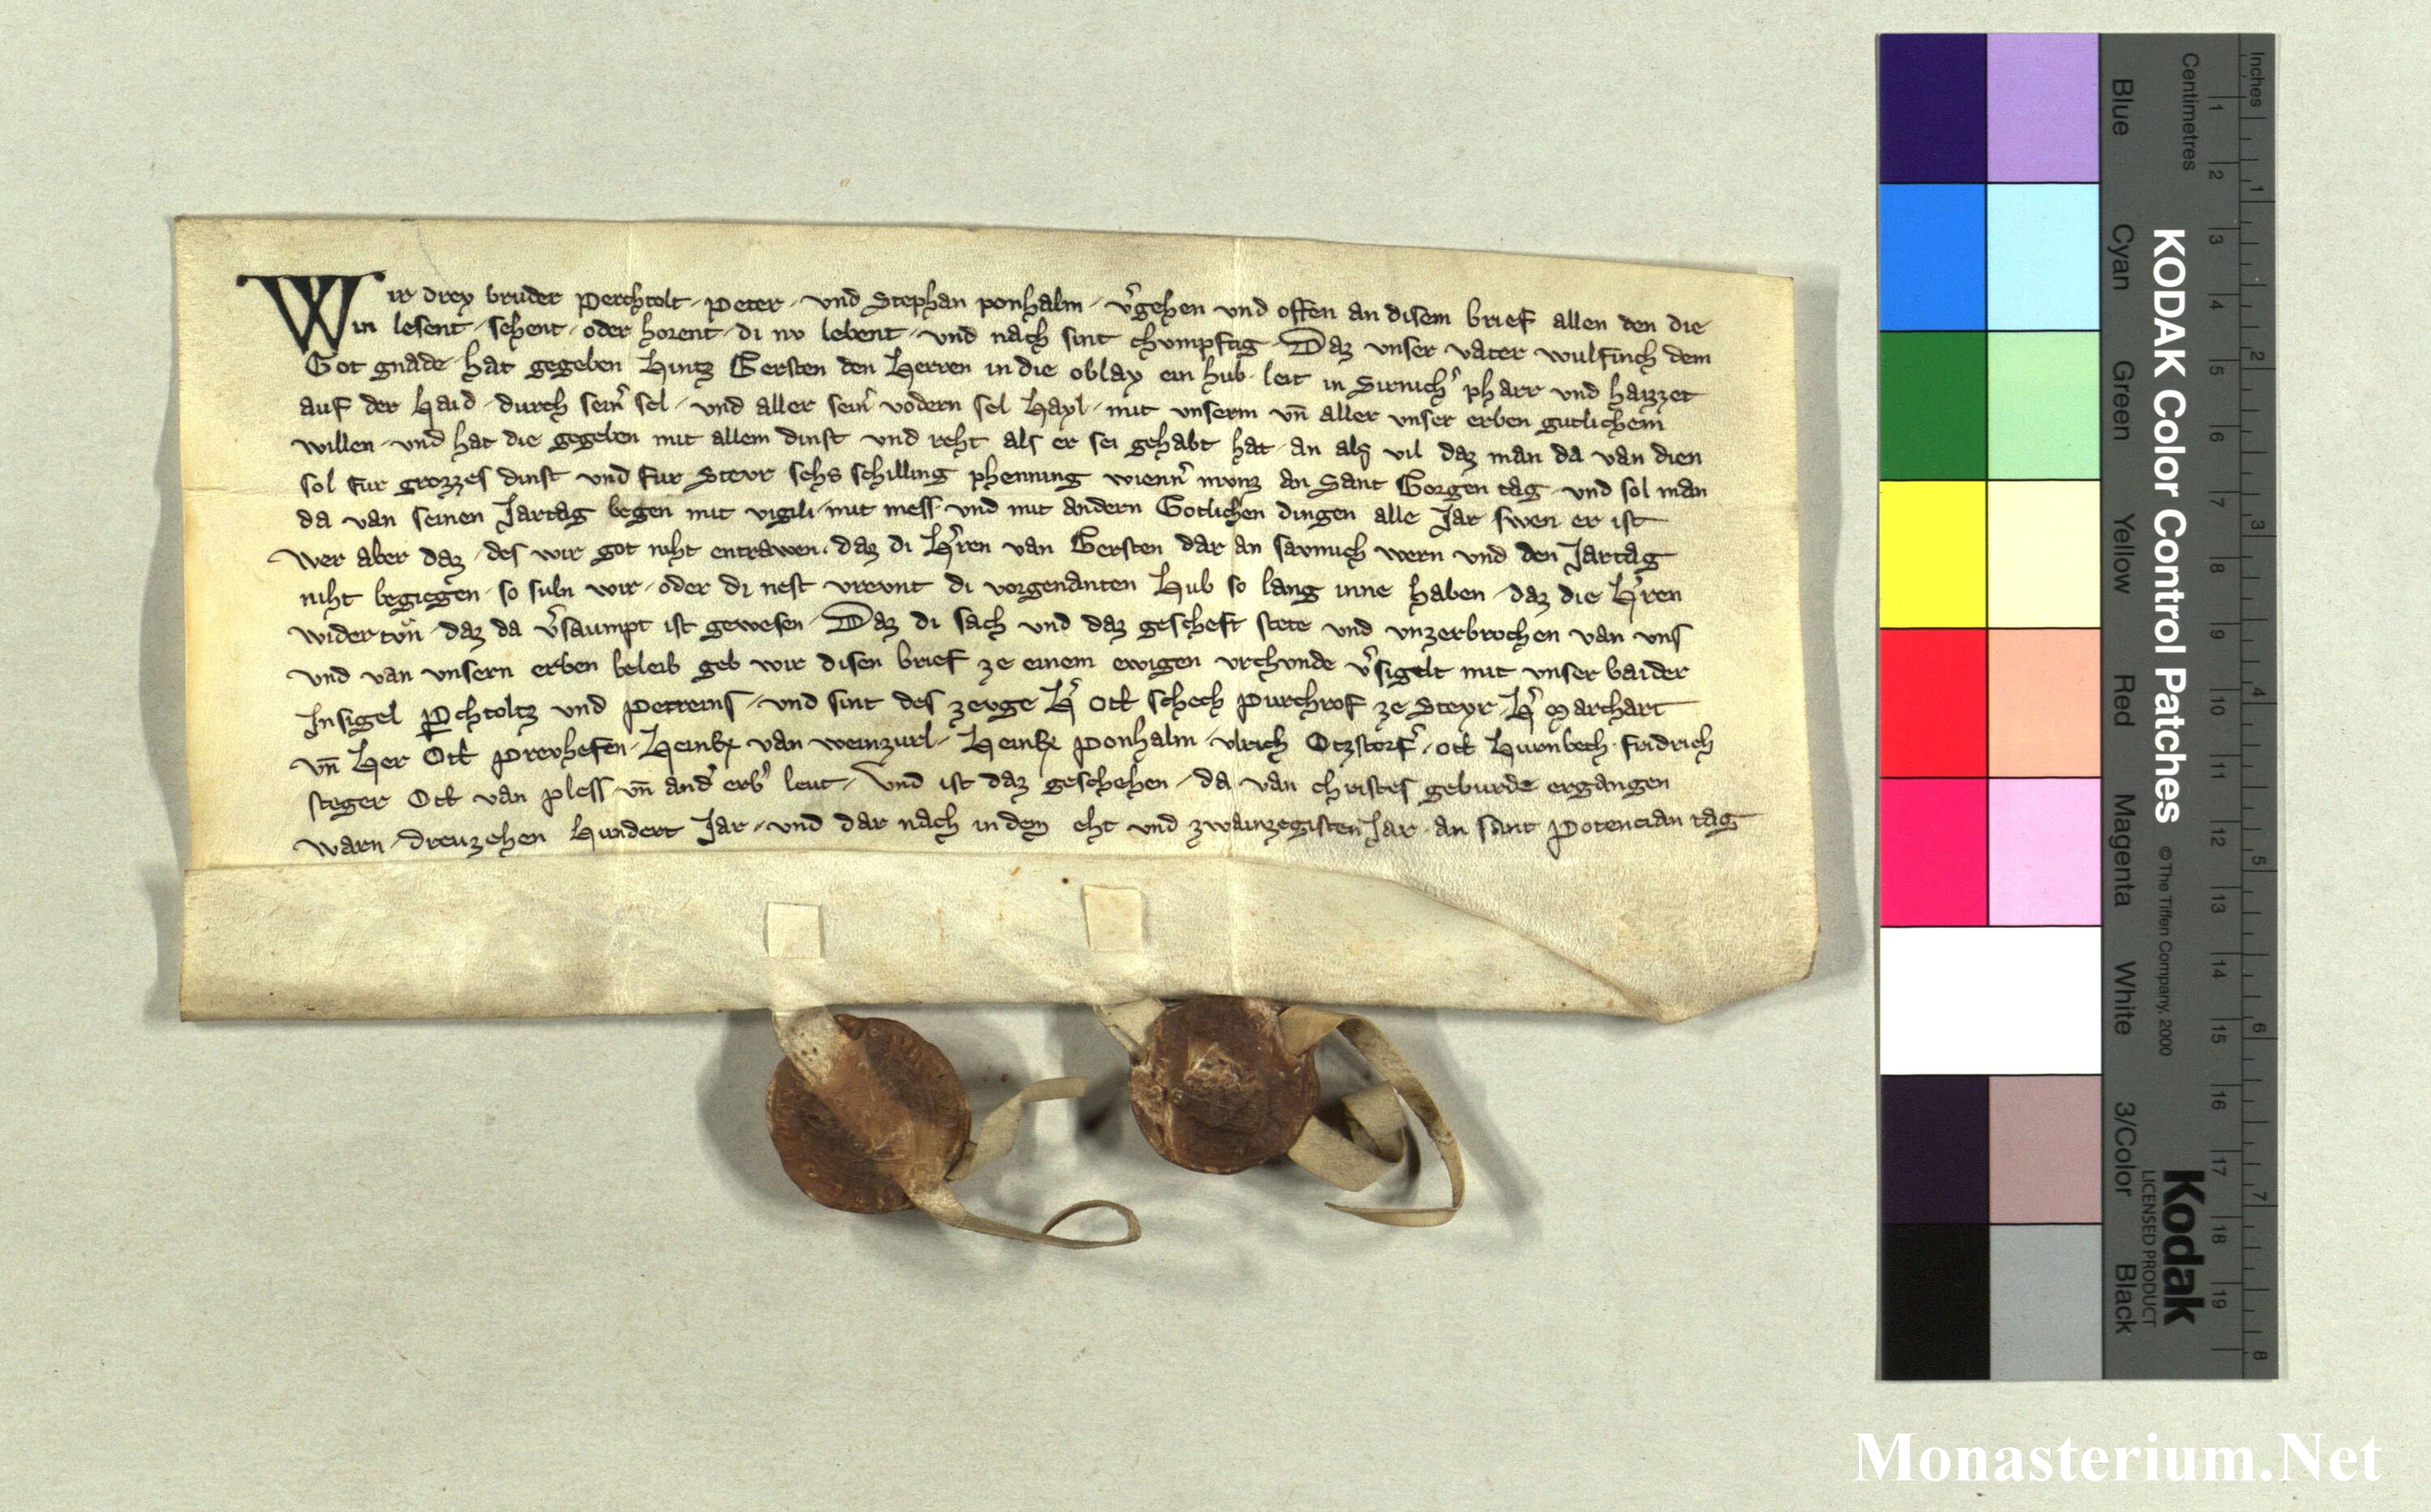 Wir drey bruder Perchtolt · Peter · und Stephan ponhalm · v͛gehen und offen an disem brief allen den die
in lesent · sehent · oder horent · di nv lebent · und nach sint chvmpftig · Daz unser vater wulfinch dem
Got gnade · hat gegeben hintz Gersten den Herren in die oblay ein hub · leit in Sirnich͛ pharr und haizzet
auf der Haid · durch sein͛ sel · und aller sein͛ vodern sel hayl · mit unserm vn̄ aller unser erben gutlichem
willen · und hat die gegeben mit allem dinst und reht als er sei gehabt hat · an als vil daz man da van dien
sol fur grozzes dinst und fur Stevr sehs schilling phenning wienn͛ mvnz an Sant Gorgen tag · und sol man
da van seinen Jartag begen mit vigili · mit mess · und mit andern Gotlichen dingen alle Jar swen er ist
wer aber daz · des wir got niht entrawen · daz di H͛ren van Gersten dar an savmich wern und den Jartag
niht begiegen · so suln wir · oder di nest vrevnt di vorgenanten Hub so lang inne haben · daz die H͛ren
widertvn · daz da v͛saumpt ist gewesen · Daz di sach und daz gescheft stete und vnzerbrochen van uns
und van unsern erben beleib geb wir disen brief ze einem ewigen vrchvnde v͛sigelt mit unser baider
Insigel P̲chtoltz und Petreins · und sint des zevge H͛ Ott schech purchrof ze Steyr · H͛ Marchart
vn̄ Her Ott prevhefen · Heinr̄ van weinzurl · Heinr̄ ponhalm · vlrich Otzstorf͛ · Ott Hurnbech · fridrich
steger Ott van pless · vn̄ and͛ erb͛ leut · Vnd ist daz geschehen · da van christes geburde ergangen
warn · dreuzehen hundert Jar · und dar nach in dem eht und zwainzegisten Jar · an sant Potencian tag
Inches
Centimetres
1 2 3 4 5 6 7 8 9 10 11 12 13 14 15 16 17 18 19
1 2 3 4 5 6 7 8
KODAK Color Control Patches
© The Tiffen Company, 2000
Kodak
LICENSED PRODUCT
Blue Cyan Green Yellow Red Magenta White 3/Color Black
Monasterium.Net